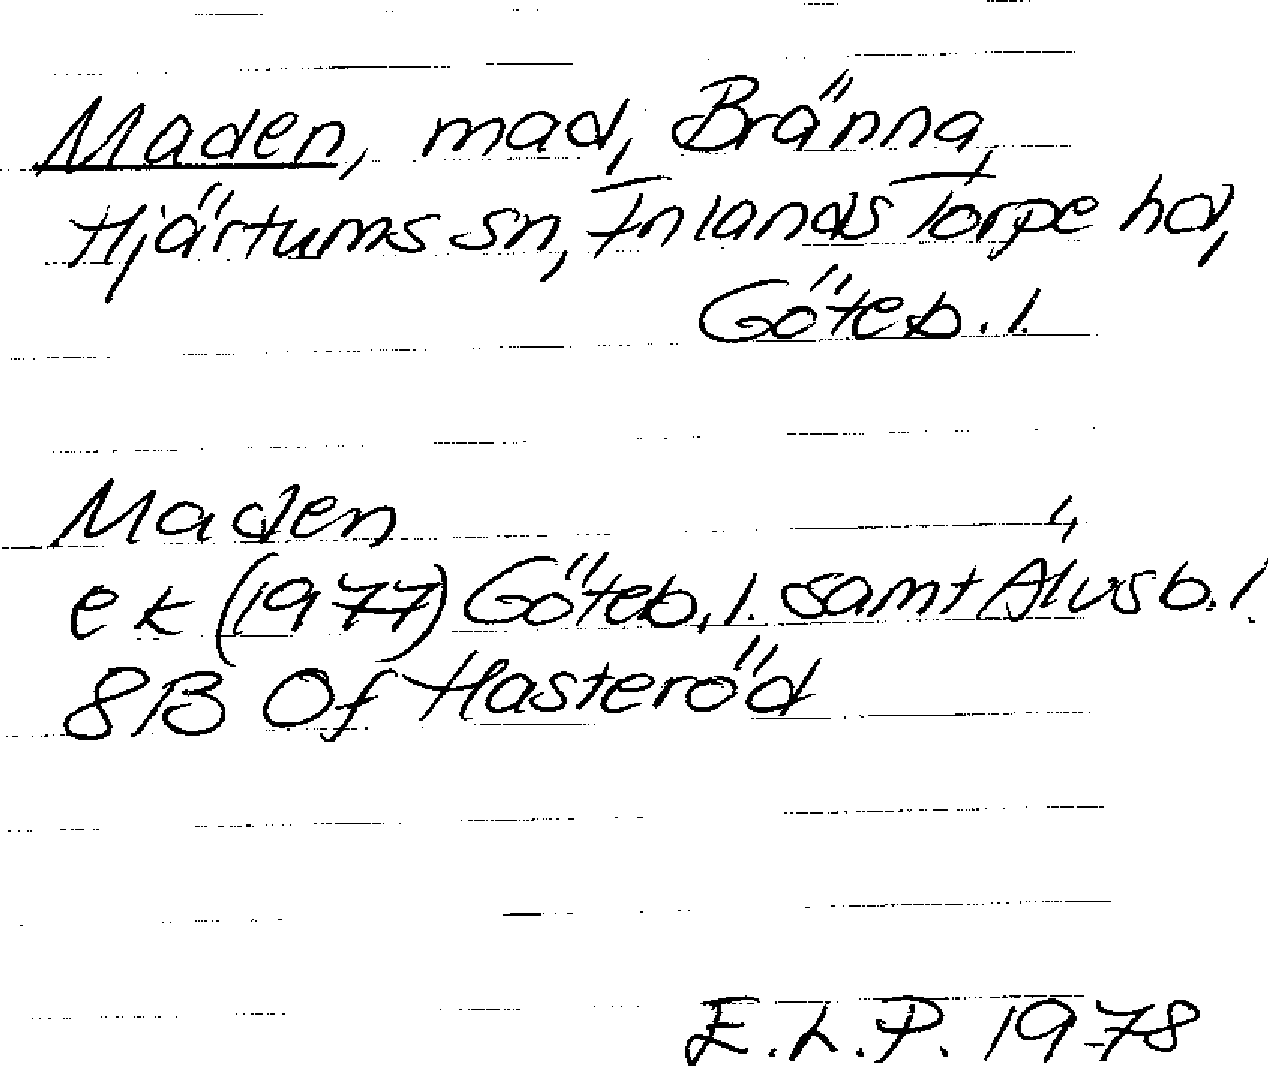 Maden, mad, Bränna,
Hjärtums sn, Inlands Torpe hd,
Göteb. l.
Maden
ek (1977) Göteb. l. samt Älvsb. l.
8B 0f Hasteröd
E. L. P. 1978